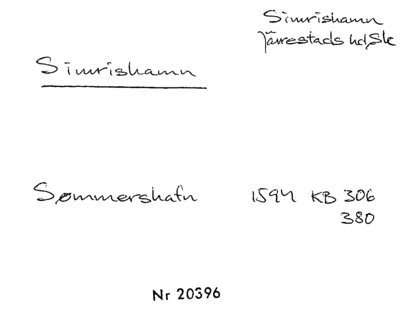 Simrishamn
Järrestads hd, Sk
Simrishamn
Sømmershafn 1594 KB 306
380
Nr 20396